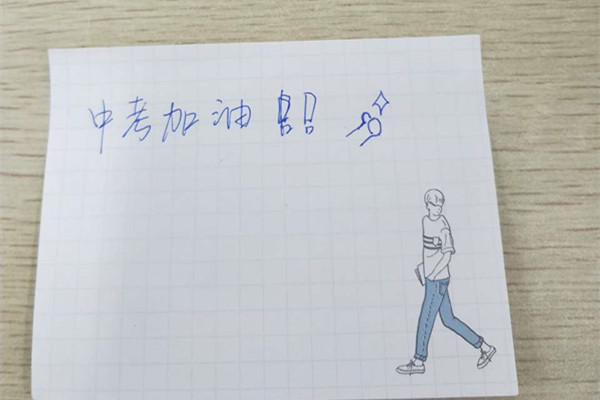 中考加油!!